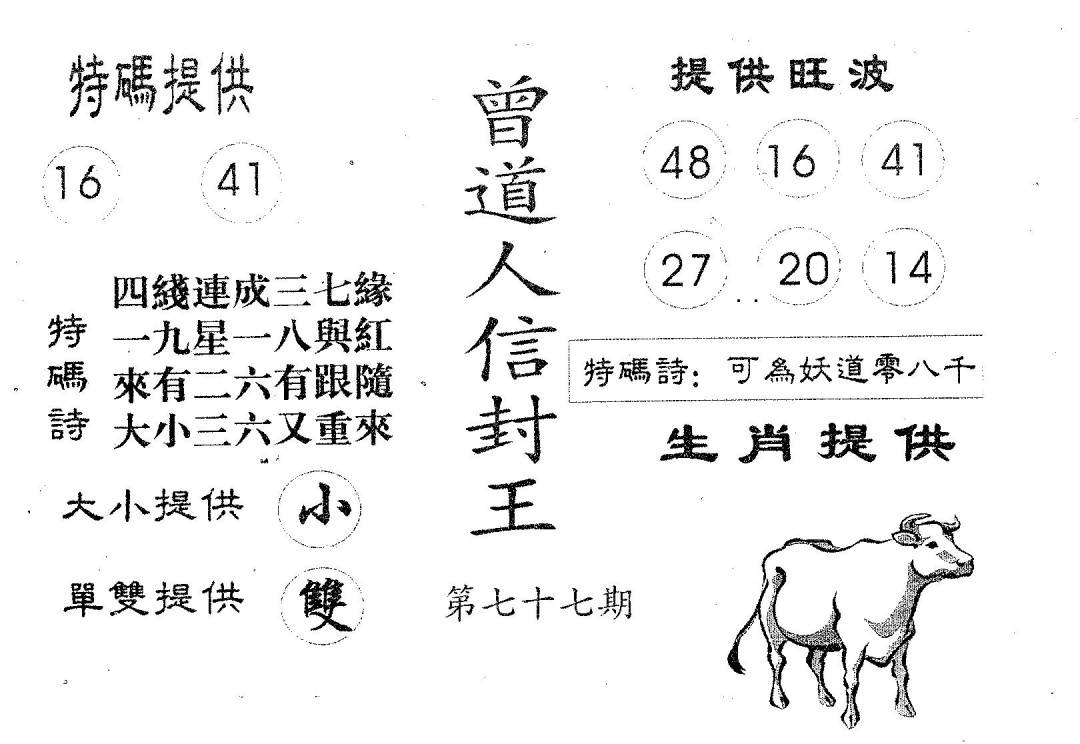 特碼提供
16 41
特碼詩
四綫連成三七緣
一九星一八與紅
來有二六有跟隨
大小三六又重來
大小提供 小
單雙提供 雙
曾道人信封王
第七十七期
提供旺波
48 16 41
27 20 14
特碼詩：可為妖道零八千
生肖提供